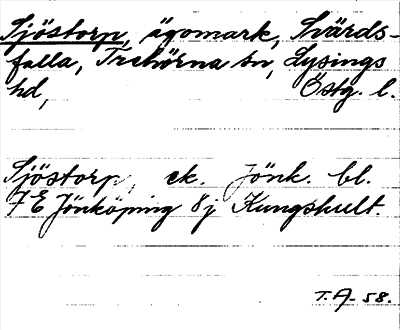 Sjöstorp, ägomark, Svärds-
falla, Trehörna sn, Lysings
hd, Östg. l.
Sjöstorp, ek. Jönk. bl.
7 E Jönköping 8j Kungshult.
T. A-58.